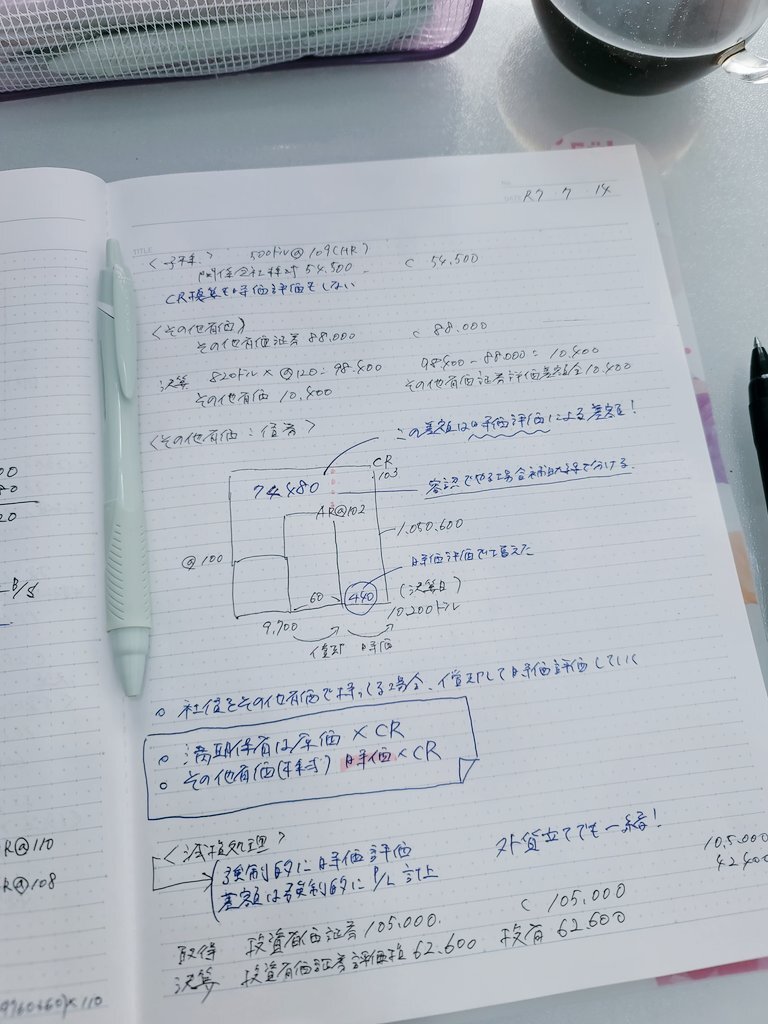 No.
DATE R7 . 7 . 14
TITLE
〈子株〉 500ドル@109(HR)
関係会社株式 54.500 C 54.500
CR換算も時価評価もしない
〈その他有価〉
その他有価証券 88.000 C 88.000
決算 820ドル×@120=98.400 98400-88.000=10.400
その他有価 10,400 その他有価証券評価差額金10.400
〈その他有価:債券〉
この差額は時価評価による差額!
CR
103
74.480
容認でやる場合 で分ける.
AR@102
@100
1.050.600
時価評価で増えた
60
440
(決算日)
10.200ドル
9.700
償却 時価
○ 社債をその他有価で持ってる場合、償却して時価評価していく
○ 満期保有は原価×CR
○ その他有価(株式) 時価×CR
〈減損処理〉
強制的に時価評価
差額は強制的にP/L計上
外貨立てでも一緒!
取得 投資有価証券 105.000. C 105.000
決算 投資有価証券評価損 62.600 投有 62.600
105.000
42400
00
80
20
B/S
R@110
R@108
×110